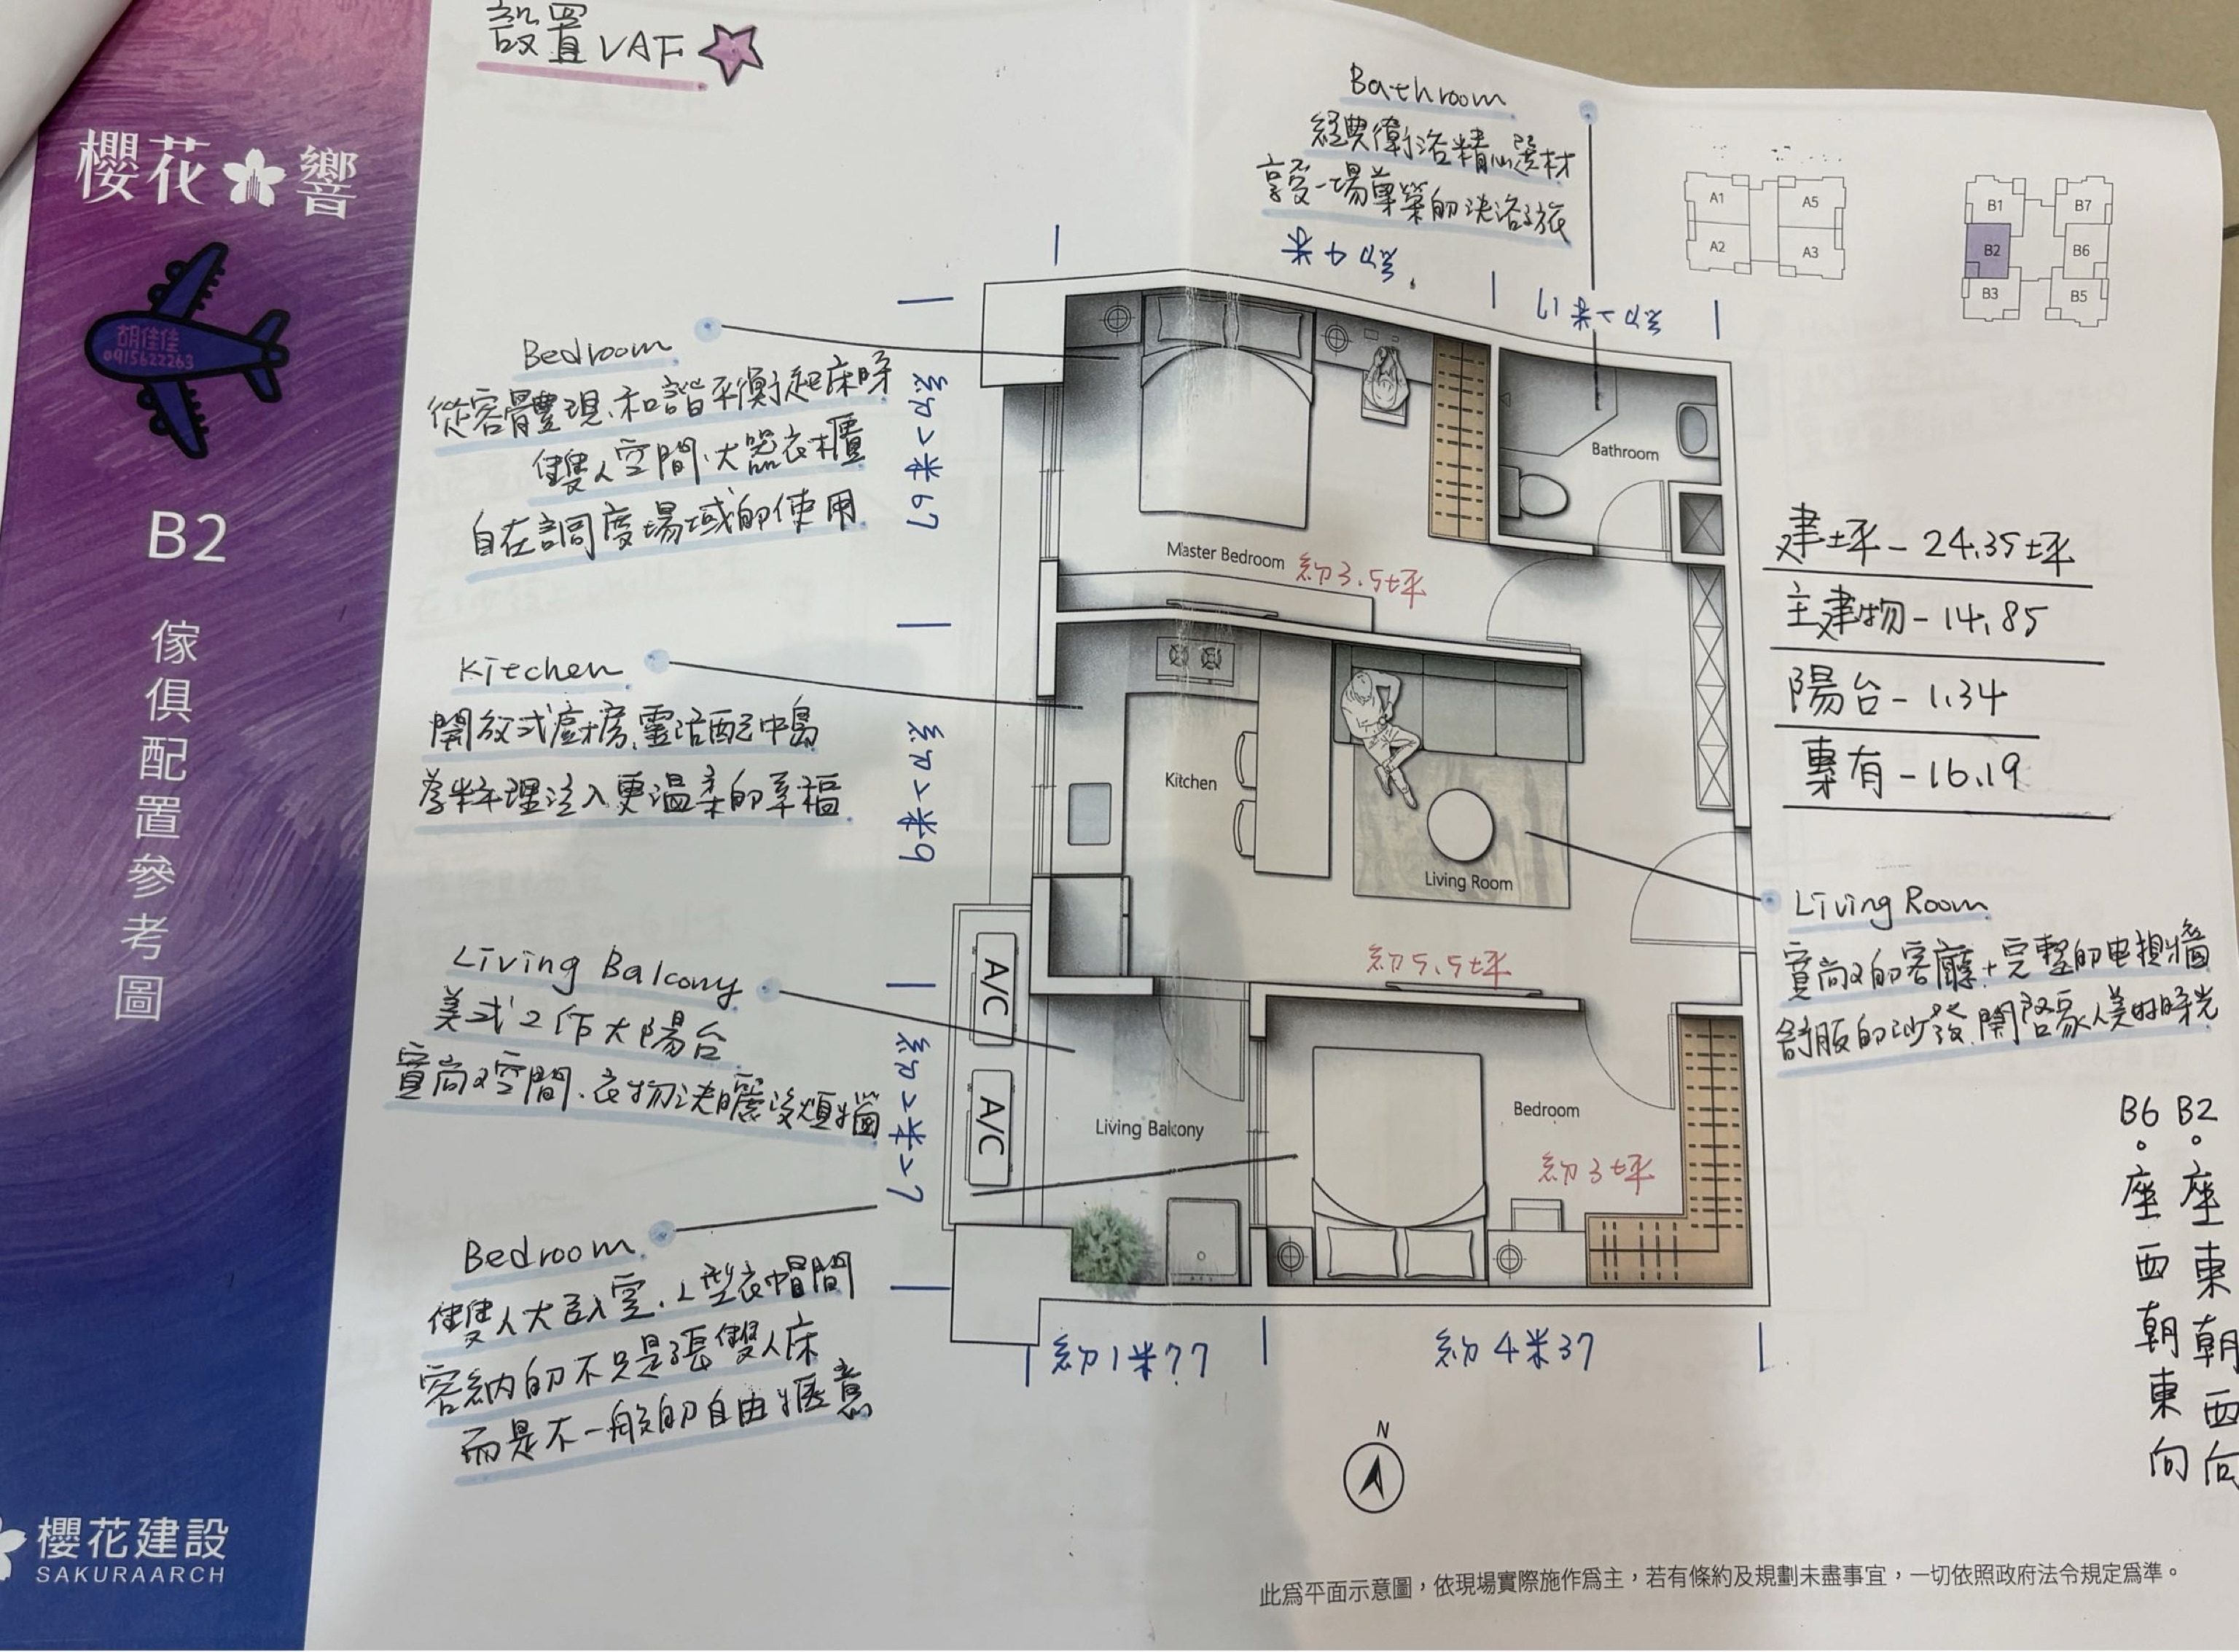 設置VAF
櫻花響
胡佳佳
0915622263
B2
傢俱配置參考圖
櫻花建設
SAKURAARCH
Bathroom
經典衛浴精心選材
享受一場尊榮的洗浴之旅
約4米
約1米61
A1
A5
A2
A3
B1
B7
B2
B6
B3
B5
Bedroom
從容體現、和諧平衡起床時
雙人空間、大器衣櫃
自在調度場域的使用
約2米67
Kitchen
開放式廚房、靈活配中島
為料理注入更溫柔的幸福
約2米9
Living Balcony
美式工作大陽台
寬尚空間、衣物洗曬沒煩惱
約2米27
Bedroom
雙人大臥室、L型衣帽間
容納的不只是張雙人床
而是不一般的自由愜意
Master Bedroom
約3.5坪
Bathroom
Kitchen
Living Room
約5.5坪
A/C
A/C
Living Balcony
Bedroom
約3坪
約1米77
約4米37
建坪-24.35坪
主建物-14.85
陽台-1.34
專有-16.19
Living Room
寬尚的客廳+完整的電視牆
舒服的沙發、開啓家人美好時光
B2。座東朝西向
B6。座西朝東向
N
此為平面示意圖，依現場實際施作為主，若有條約及規劃未盡事宜，一切依照政府法令規定為準。